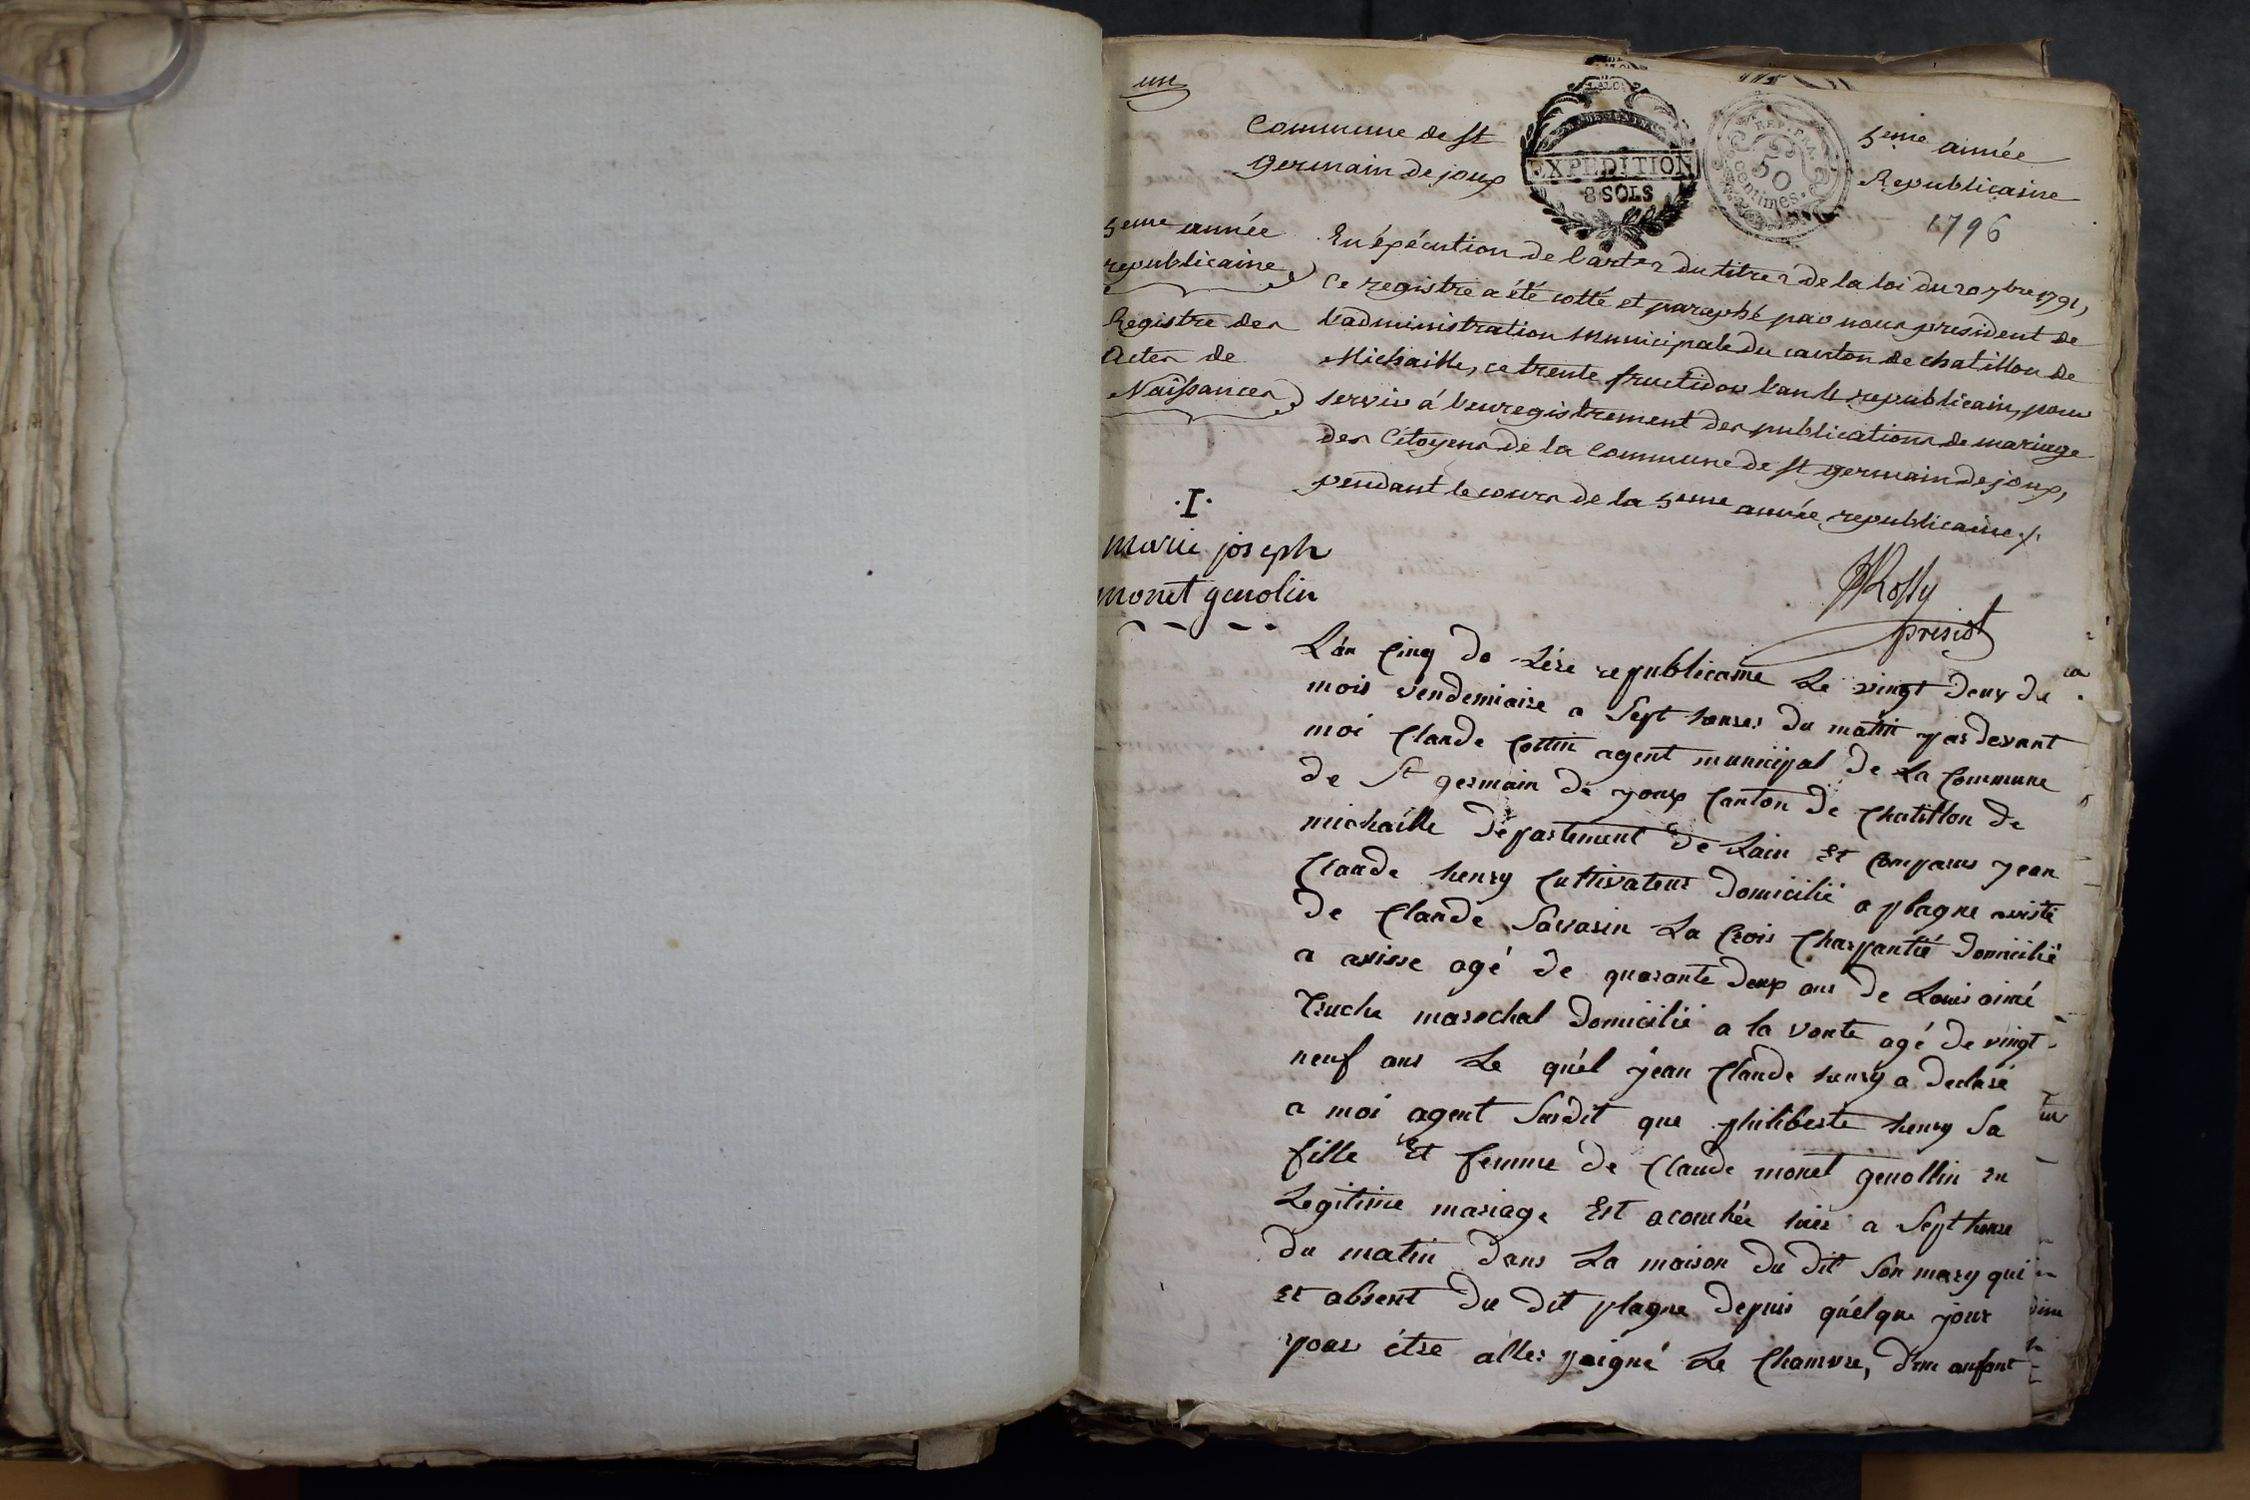 un
Commune de St
germain de joux
EXPEDITION
8 SOLS
REP. FRA.
50
centimes.
5eme année
Republicaine
1796
5eme année
republicaine
Registre des
Actes de
Naissances
En éxécution de l'art 2 du titre 2 de la loi du 20 7bre 1792,
Ce registre a été cotté et paraphé par nous president de
l'administration municipale du canton de chatillon de
Michaille, ce trente fructidor l'an 4 republicain, pour
servir á l'enregistrement des publications de mariage
des Citoyens de la Commune de St germain de joux,
pendant le cours de la 5eme année republicaine ./.
Rossy
presidt
.I.
marie joseph
monet genolin
L'an Cinq de Lére republicaine Le vingt deux du
mois vendemiaire a Sept heures du matin par devant
moi Claude Cottin agent municipal de La Commune
de St germain de youx Canton de Chatillon de
michaille département de Lain Et Comparus jean
Claude henry Cultivateur domicilié a plagne assisté
de Claude Savarin La Crois Charpantié domicilié
a avisse agé de quarante deux ans de Louis aimé
Truche marechal domicilié a la voute agé de vingt
neuf ans Le quel jean Claude henry a declaré
a moi agent Susdit que philiberte henry Sa
fille Et femme de Claude monet genollin En
Legitime mariage Est acouchée hier a Sept heure
du matin dans La maison du dit Son mary qui
Et absent du dit plagne depuis quelque jour
pour étre aller paigné Le Chamvre, d'un anfant